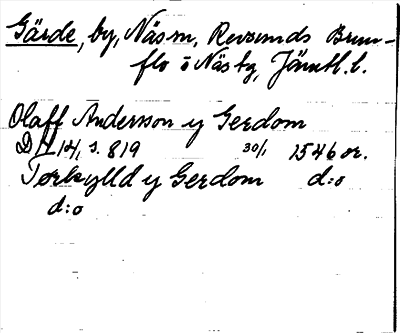 Gärde, by, Näs sn, Revsunds Brun-
flo o Näs tg, Jämtl. l.
Olaff Andersson y Gerdom
D N 14, s. 819 30/1 1546 or.
Torkylld y Gerdom d:o
d:o